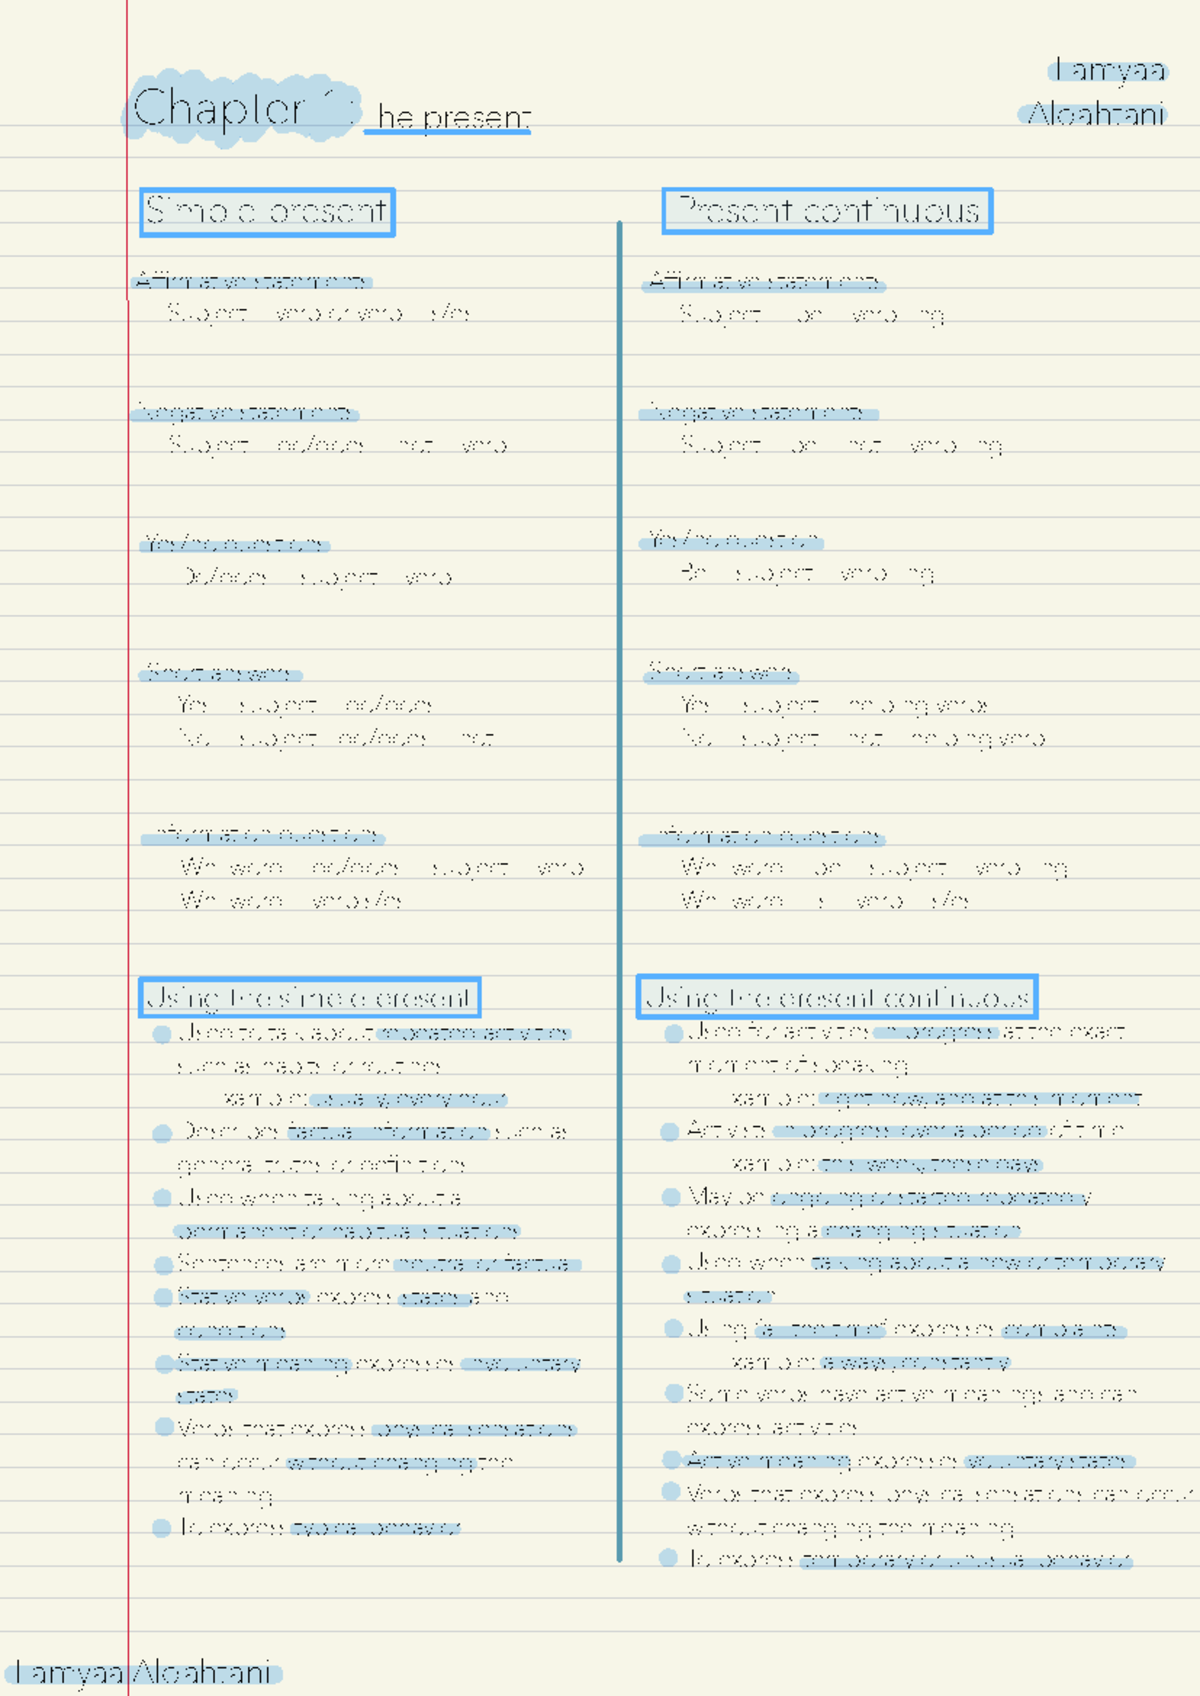 Lamyaa
Alqahtani
Chapter 1: The present
Simple present
Affirmative statements
Subject verb or verb s/es
Negative statements
Subject do/does not verb
Yes/no questions
Do/does subject verb
Short answers
Yes subject do/does
No subject do/does not
Information questions
Wh- word do/does subject verb
Wh- word verb s/es
Using the simple present
Used to talk about repeated activities
such as habits or routines
Example: usually, every hour
Describes factual information such as
general truths or definitions
Used when talking about a
permanent or habitual situations
Sentences are more neutral or factual
Stative verbs express states and
conditions
Stative meaning expresses involuntary
states
Verbs that express physical sensations
can occur without changing the
meaning
To express typical behavior
Present continuous
Affirmative statements
Subject be verb ing
Negative statements
Subject be not verb ing
Yes/no question
Be subject verb ing
Short answers
Yes subject helping verbs
No subject not helping verb
Information questions
Wh- word be subject verb ing
Wh- word is verb s/es
Using the present continuous
Used for activities in progress at the exact
moment of speaking
Example: right now, and at this moment
in progress over a period of time
Example: this week, these days
May be ongoing or started repeatedly
expressing a changing situation
Used when talking about a new or temporary
situation
Using "all the time" expresses complaints
Example: always, constantly
Some verbs have active meanings and can
express activities
Active meaning expresses voluntary states
Verbs that express physical sensations can occur
without changing the meaning
To express temporary or unusual behavior
Lamyaa Alqahtani